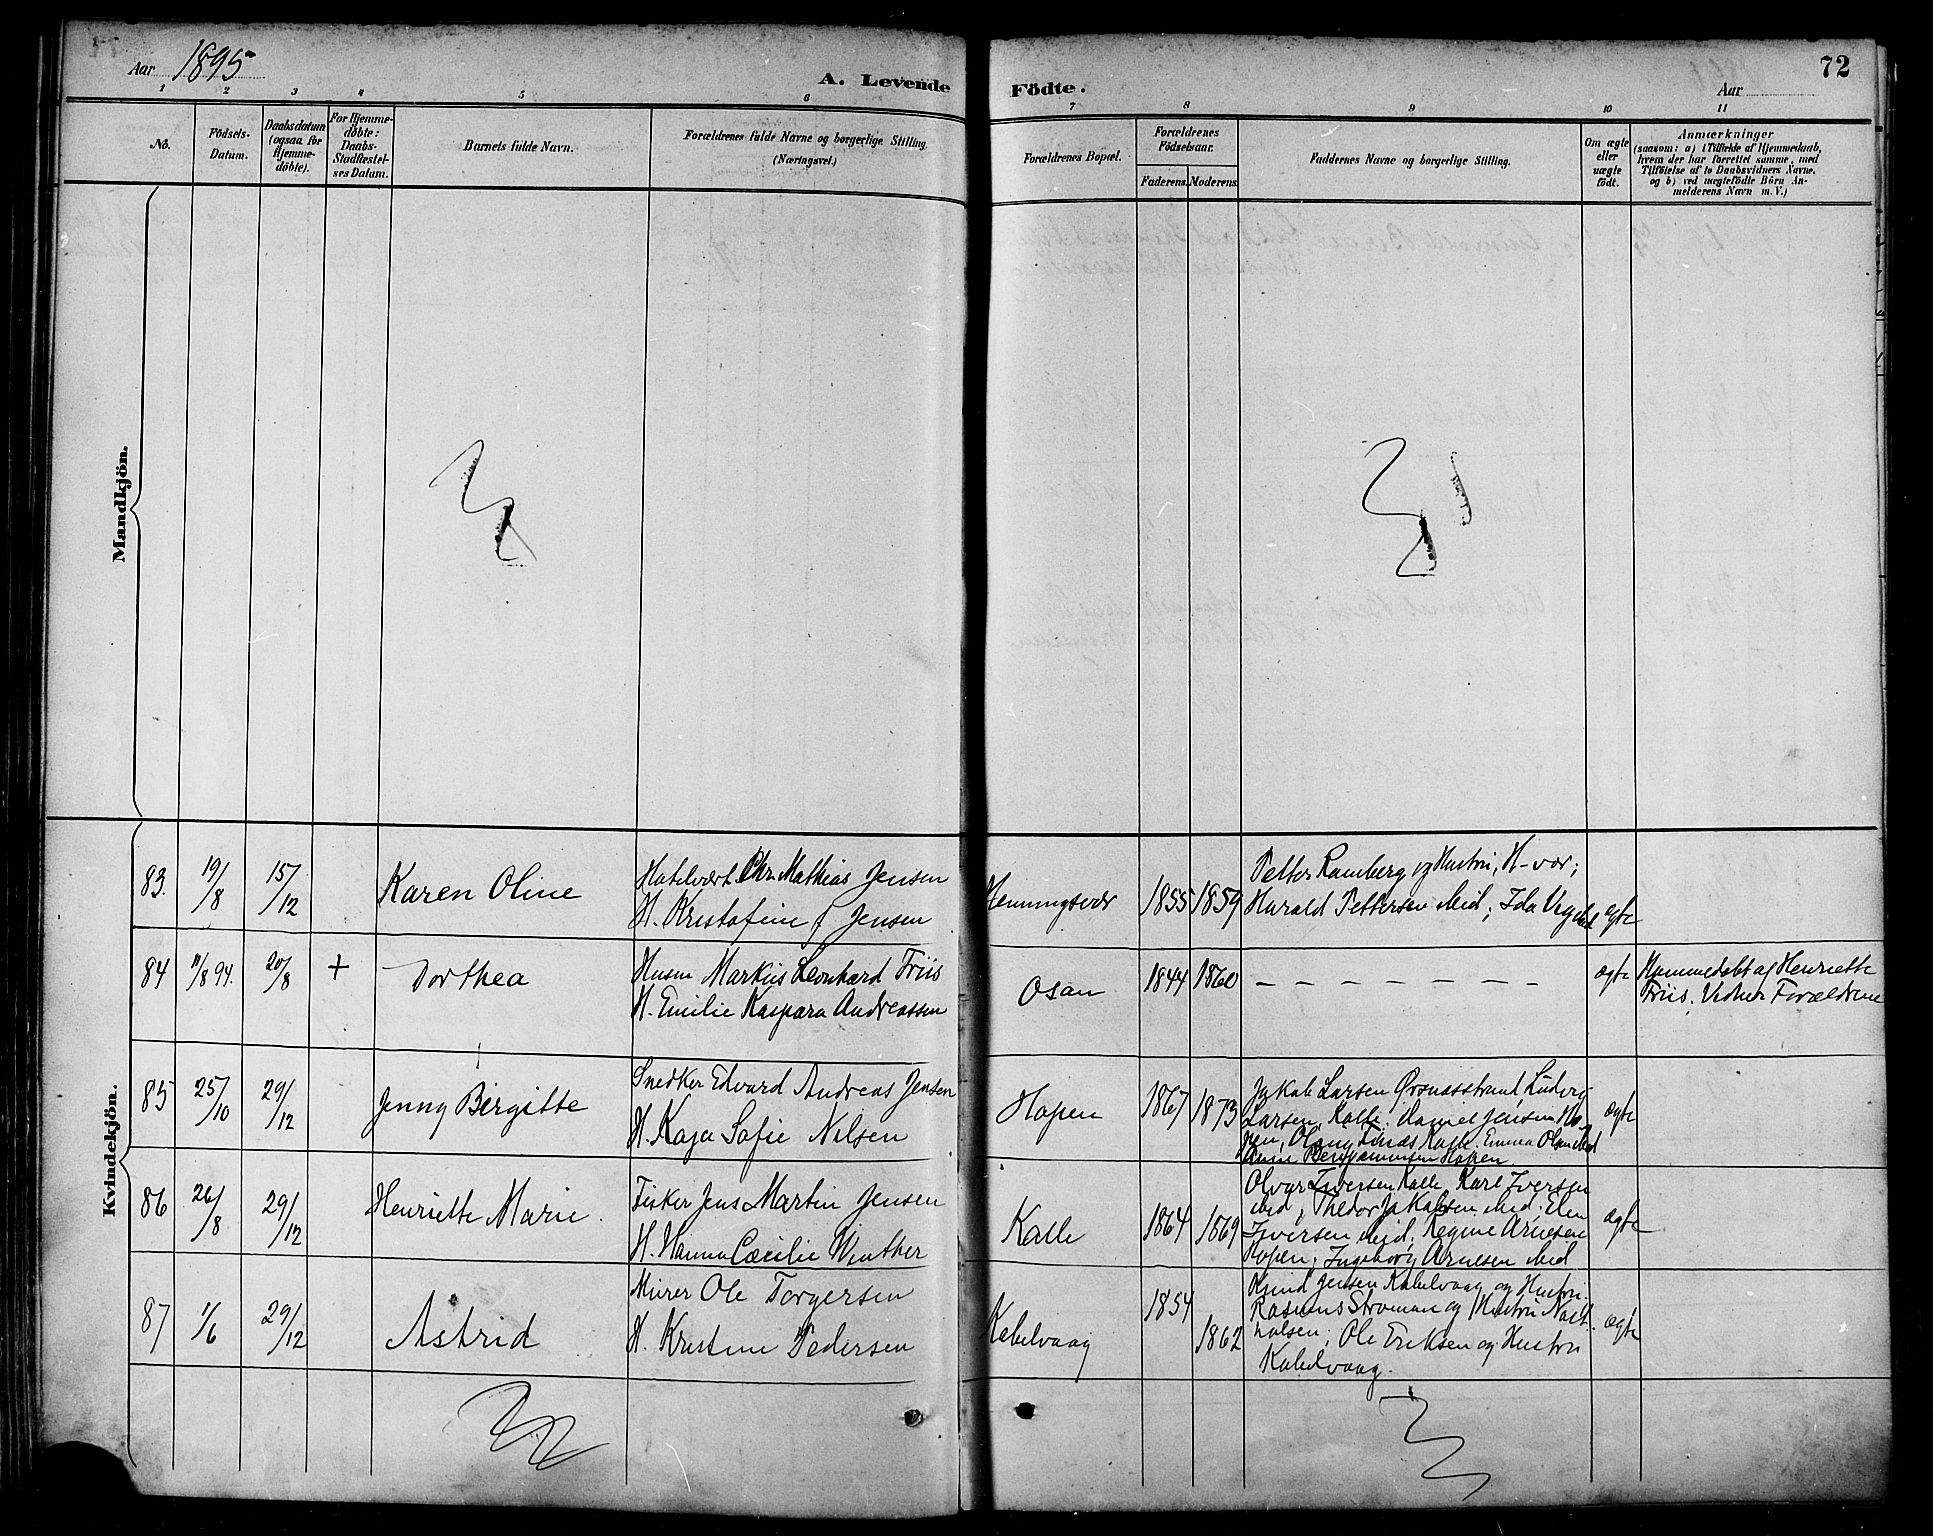 Aar 1895
A. Levende
Födte.
Aar
72
1 2 3 4 5 6 7 8 9 10 11
No.
Födsels-
Datum.
Daabsdatum
(ogsaa for
Hjemme-
döbte).
For Hjemme-
döbte:
Daabs-
Stadfæstel-
ses Datum.
Barnets fulde Navn.
Forældrenes fulde Navne og borgerlige Stilling.
(Næringsvei.)
Forældrenes Bopæl.
Forældrenes
Födselsaar.
Faderens.
Moderens.
Faddernes Navne og borgerlige Stilling.
Om ægte
eller
uægte
födt.
Anmærkninger
(saasom: a) i Tilfælde af Hjemmedaab,
hvem der har forrettet samme, med
Tilföielse af to Daabsvidners Navne.
og b) ved uægtefödte Börn An-
melderens Navn m. V.)
Mandkjön.
Kvindekjön.
83. 19/8 15/12 Karen Oline
Hotelvært Chr. Mathias Jensen
H. Kristofine Jensen
Henningsvær 1855 1859
Petter Ramberg og Hustru, H-vær;
Harald Pettersen ibid; Ida
ægte
84 11/8 94. 20/8 + Dorthea
Husm Markus Leonhard Friis
H. Emilie Kaspara Andreassen
Osan 1844 1860 – – – – – – – ægte
Hjemmedøbt af Henriette
Friis. Vidner Forældrene
85 25/10 29/12 Jenny Birgitte
Snedker Edvard Andreas Jensen
H. Kaja Sofie Nilsen
Hopen 1867 1873
Jakob Larsen Ørsnæsstrand, Ludvig
Larsen, Kalle. Daniel Jensen Ho-
pen, Kalle. Emma Olsen ibid
Benjaminsen Hopen
ægte
86 26/8 29/12 Henriette Marie.
Fisker Jens Martin Jensen
H. Hanna Cæcilie Winther
Kalle 1864 1869
Iversen Kalle, Karl Iversen
ibid, Thedor Jakobsen ibid; Elen
Iversen ibid; Regine Arnesen
Hopen; Ingeborg Arnesen ibid
ægte
87 1/6 29/12 Astrid
Murer Ole Torgersen
H. Kristine Pedersen
Kabelvaag 1854 1862
Jensen Kabelvaag og Hustru.
Rasmus Stroman og Hustru
Ole Eriksen og Hustru
Kabelvaag.
ægte